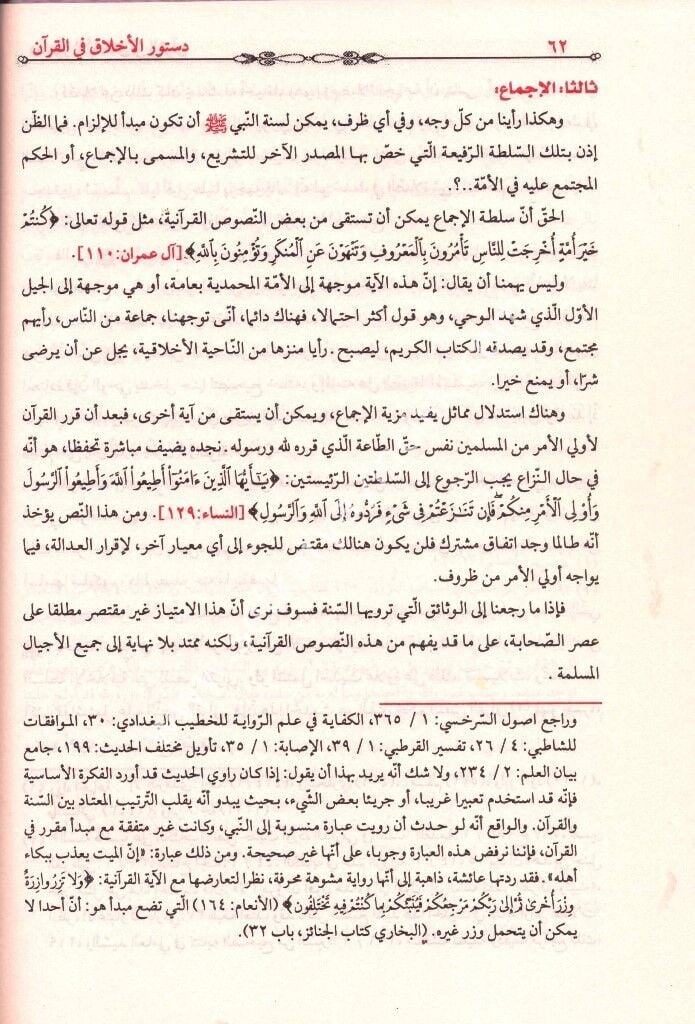 ٦٢
دستور الأخلاق في القرآن
ثالثا: الإجماع:
وهكذا رأينا من كلّ وجه، وفي أي ظرف، يمكن لسنة النّبي ﷺ أن تكون مبدأ للإلزام. فما الظّن
إذن بتلك السّلطة الرّفيعة الّتي خصّ بها المصدر الآخر للتشريع، والمسمى بالإجماع، أو الحكم
المجتمع عليه في الأمّة..؟.
الحقّ أنّ سلطة الإجماع يمكن أن تستقى من بعض النّصوص القرآنية، مثل قوله تعالى: ﴿كُنتُمْ
خَيْرَ أُمَّةٍ أُخْرِجَتْ لِلنَّاسِ تَأْمُرُونَ بِالْمَعْرُوفِ وَتَنْهَوْنَ عَنِ الْمُنكَرِ وَتُؤْمِنُونَ بِاللَّهِ﴾. [آل عمران:١١٠].
وليس يهمنا أن يقال: إنّ هذه الآية موجهة إلى الأمّة المحمدية بعامة، أو هي موجهة إلى الجيل
الأوّل الّذي شهد الوحي، وهو قول أكثر احتمالا، فهناك دائما، أنّى توجهنا، جماعة من النّاس، رأيهم
مجتمع، وقد يصدقه الكتاب الكريم، ليصبح. رأيا منزها من النّاحية الأخلاقية، يجل عن أن يرضى
شرّا، أو يمنع خيرا.
وهناك استدلال مماثل يفيد مزية الإجماع، ويمكن أن يستقى من آية أخرى، فبعد أن قرر القرآن
لأولي الأمر من المسلمين نفس حقّ الطّاعة الّذي قرره لله ورسوله. نجده يضيف مباشرة تحفظا، هو أنّه
في حال النّزاع يجب الرّجوع إلى السّلطتين الرّئيستين: ﴿يَـٰٓأَيُّهَا ٱلَّذِينَ ءَامَنُوٓا۟ أَطِيعُوا۟ ٱللَّهَ وَأَطِيعُوا۟ ٱلرَّسُولَ
وَأُو۟لِى ٱلْأَمْرِ مِنكُمْ ۖ فَإِن تَنَـٰزَعْتُمْ فِى شَىْءٍ فَرُدُّوهُ إِلَى ٱللَّهِ وَٱلرَّسُولِ﴾ [النساء:١٢٩]. ومن هذا النّص يؤخذ
أنّه طالما وجد اتفاق مشترك فلن يكون هنالك مقتض للجوء إلى أي معيار آخر، لإقرار العدالة، فيما
يواجه أولي الأمر من ظروف.
فإذا ما رجعنا إلى الوثائق الّتي ترويها السّنة فسوف نرى أنّ هذا الامتياز غير مقتصر مطلقا على
عصر الصّحابة، على ما قد يفهم من هذه النّصوص القرآنية، ولكنه ممتد بلا نهاية إلى جميع الأجيال
المسلمة.
وراجع اصول السّرخسي: ١ / ٣٦٥، الكفاية في علم الرّواية للخطيب البغدادي: ٣٠، الموافقات
للشاطبي: ٤ / ٢٦، تفسير القرطبي: ١ / ٣٩، الإصابة: ١ / ٣٥، تأويل مختلف الحديث: ١٩٩، جامع
بيان العلم: ٢ / ٢٣٤، ولا شك أنّه يريد بهذا أن يقول: إذا كان راوي الحديث قد أورد الفكرة الأساسية
فإنّه قد استخدم تعبيرا غريبا، أو جريئا بعض الشّيء، بحيث يبدو أنّه يقلب التّرتيب المعتاد بين السّنة
والقرآن. والواقع أنّه لو حدث أن رويت عبارة منسوبة إلى النّبي، وكانت غير متفقة مع مبدأ مقرر في
القرآن، فإنّنا نرفض هذه العبارة وجوبا، على أنّها غير صحيحة. ومن ذلك عبارة: «إنّ الميت يعذب ببكاء
أهله». فقد ردتها عائشة، ذاهبة إلى أنّها رواية مشوهة محرفة، نظرا لتعارضها مع الآية القرآنية: ﴿وَلَا تَزِرُ وَازِرَةٌ
وِزْرَ أُخْرَىٰ ثُمَّ إِلَىٰ رَبِّكُم مَّرْجِعُكُمْ فَيُنَبِّئُكُم بِمَا كُنتُمْ فِيهِ تَخْتَلِفُونَ﴾ (الأنعام: ١٦٤) الّتي تضع مبدأ هو: أنّ أحدا لا
يمكن أن يتحمل وزر غيره. (البخاري كتاب الجنائز، باب ٣٢).